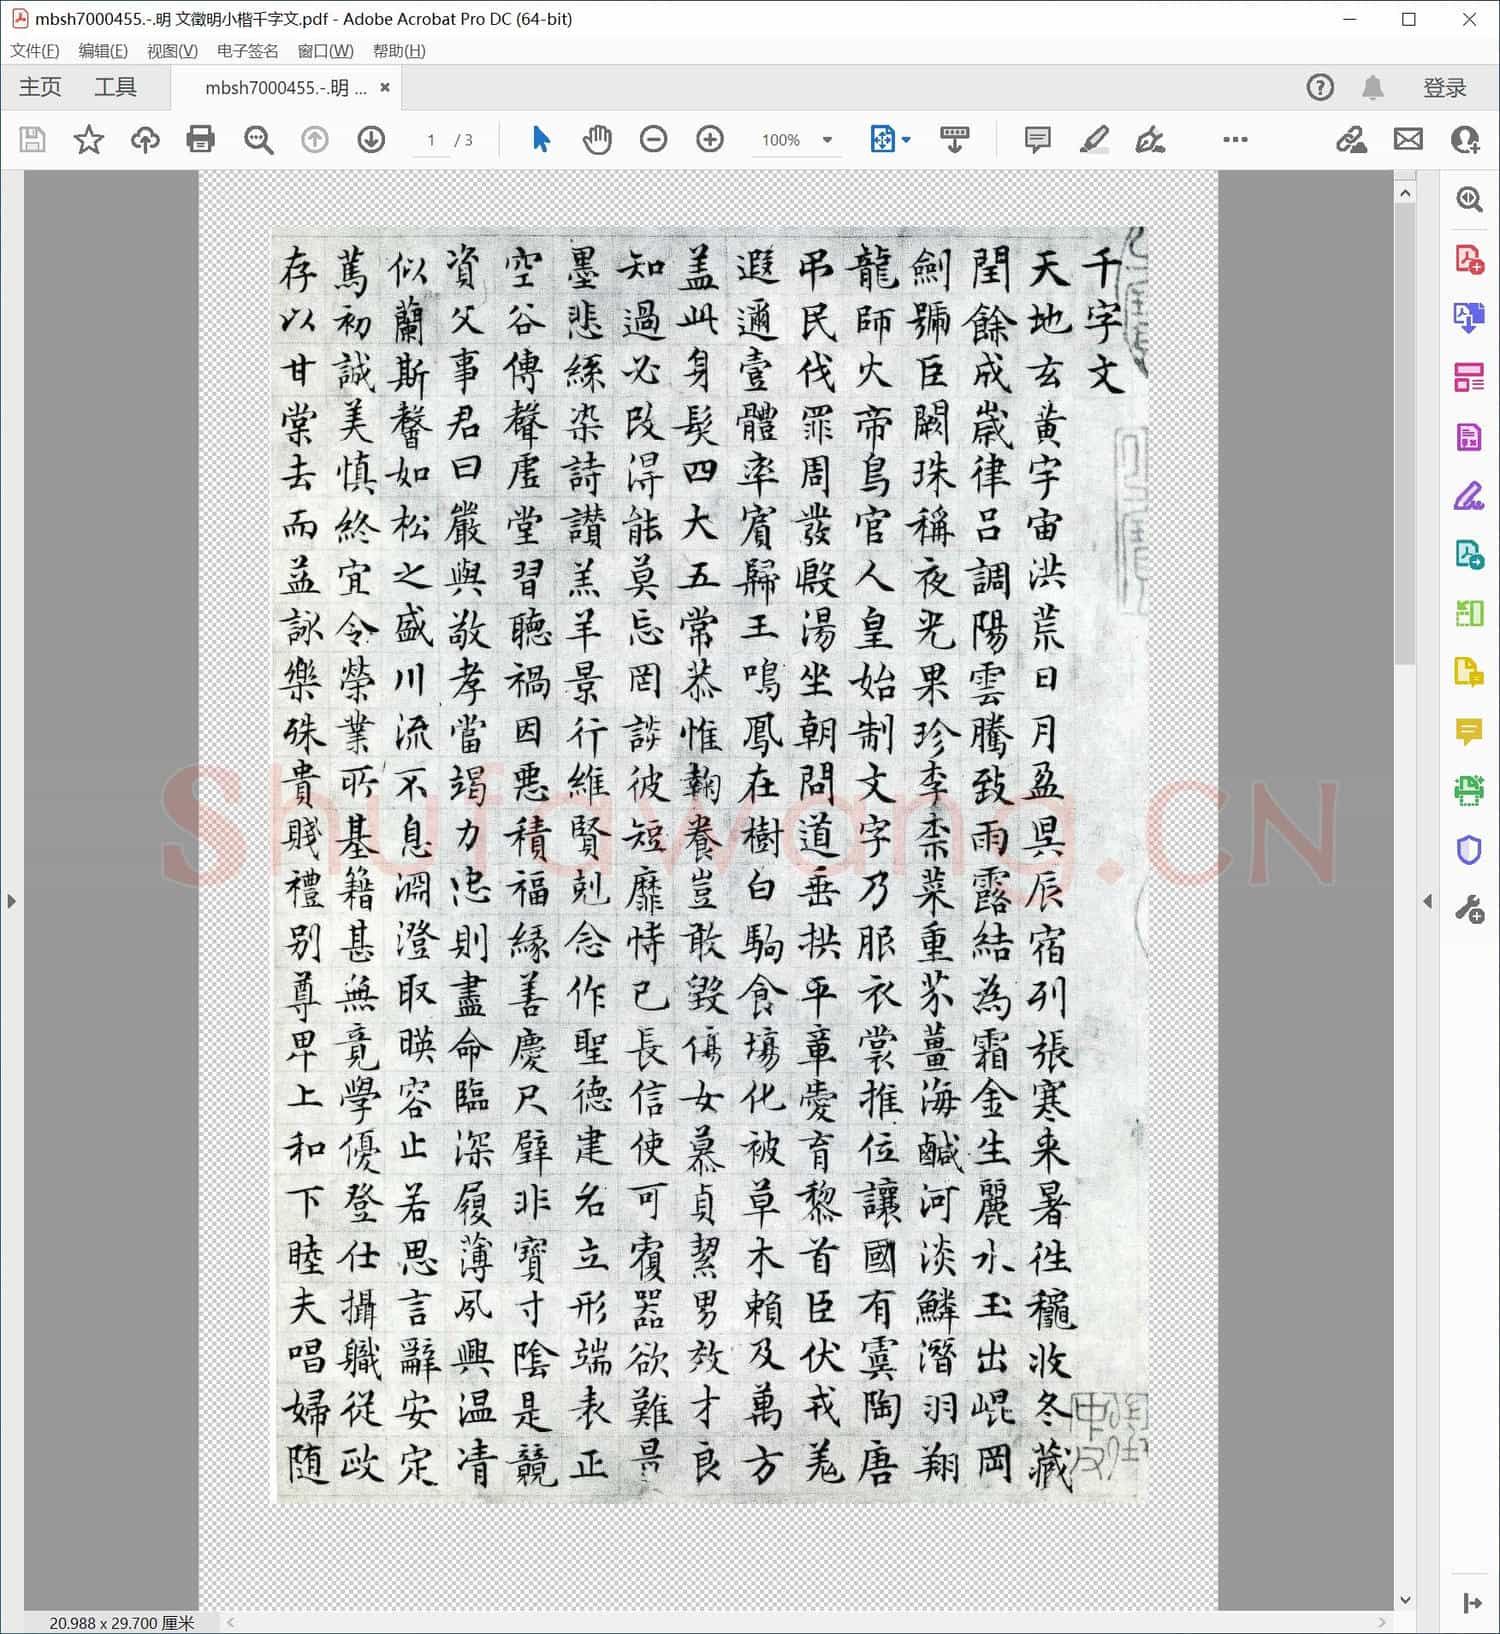 mbsh7000455.-.明 文徵明小楷千字文.pdf - Adobe Acrobat Pro DC (64-bit)
文件(F) 编辑(E) 视图(V) 电子签名 窗口(W) 帮助(H)
主页 工具 mbsh7000455.-.明 ... 登录
1 / 3 100%
千字文
天地玄黄宇宙洪荒日月盈昃辰宿列張寒来暑往穐收冬藏
閏餘成歲律呂調陽雲騰致雨露結為霜金生麗水玉出崐岡
劍號巨闕珠稱夜光果珍李柰菜重芥薑海鹹河淡鱗潛羽翔
龍師火帝鳥官人皇始制文字乃服衣裳推位讓國有虞陶唐
弔民伐罪周發殷湯坐朝問道垂拱平章愛育黎首臣伏戎羌
遐邇壹體率賓歸王鳴鳳在樹白駒食場化被草木賴及萬方
盖此身髮四大五常恭惟鞠養豈敢毀傷女慕貞絜男效才良
知過必改得能莫忘罔談彼短靡恃己長信使可覆器欲難量
墨悲絲染詩讚羔羊景行維賢剋念作聖德建名立形端表正
空谷傳聲虛堂習聽禍因惡積福緣善慶尺璧非寶寸陰是競
資父事君曰嚴與敬孝當竭力忠則盡命臨深履薄夙興温凊
似蘭斯馨如松之盛川流不息淵澄取暎容止若思言辭安定
篤初誠美慎終宜令榮業所基籍甚無竟學優登仕攝職從政
存以甘棠去而益詠樂殊貴賤禮別尊卑上和下睦夫唱婦随
Shufawang.CN
20.988 x 29.700 厘米